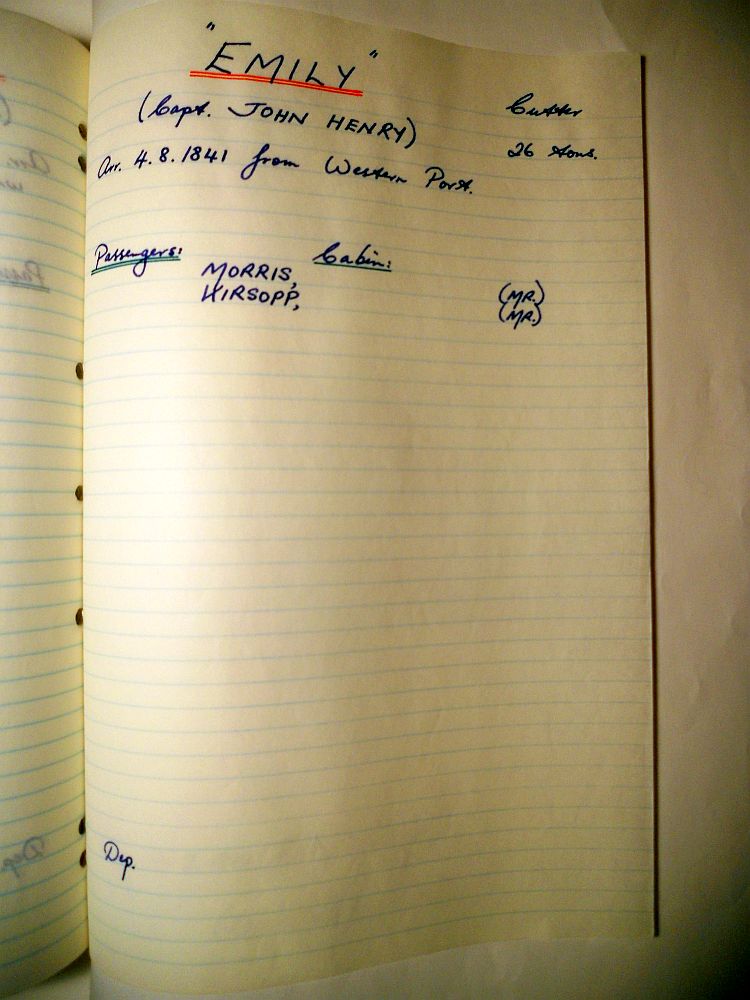 "EMILY"
(Capt. JOHN HENRY) Cutter
Arr. 4.8.1841 from Western Port. 26 tons.
Passengers: Cabin:
MORRIS, (MR.)
HIRSOPP, (MR.)
Dep.